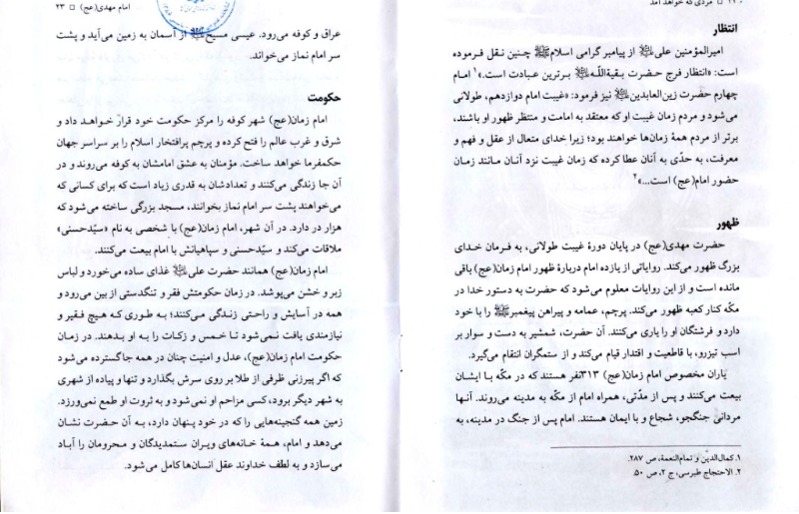 مردی که خواهد آمد
انتظار
امیرالمؤمنین علی از پیامبر گرامی اسلام چنین نقل فرموده
است: «انتظار فرج حضرت بقیةاللّه برترین عبادت است.»۱ امام
چهارم حضرت زین‌العابدین نیز فرمود: «غیبت امام دوازدهم، طولانی
می‌شود و مردم زمان غیبت او که معتقد به امامت و منتظر ظهور او باشند،
برتر از مردم همهٔ زمان‌ها خواهند بود؛ زیرا خدای متعال از عقل و فهم و
معرفت، به حدّی به آنان عطا کرده که زمان غیبت نزد آنان مانند زمان
حضور امام(عج) است...»۲
ظهور
حضرت مهدی(عج) در پایان دورهٔ غیبت طولانی، به فرمان خدای
بزرگ ظهور می‌کند. روایاتی از یازده امام دربارهٔ ظهور امام زمان(عج) باقی
مانده است و از این روایات معلوم می‌شود که حضرت به دستور خدا در
مکّه کنار کعبه ظهور می‌کند. پرچم، عمامه و پیراهن پیغمبر را با خود
دارد و فرشتگان او را یاری می‌کنند. آن حضرت، شمشیر به دست و سوار بر
اسب تیزرو، با قاطعیت و اقتدار قیام می‌کند و از ستمگران انتقام می‌گیرد.
یاران مخصوص امام زمان(عج) ۳۱۳نفر هستند که در مکّه با ایشان
بیعت می‌کنند و پس از مدّتی، همراه امام از مکّه به مدینه می‌روند. آنها
مردانی جنگجو، شجاع و با ایمان هستند. امام پس از جنگ در مدینه، به
۱. کمال‌الدّین و تمام‌النعمة، ص ۲۸۷.
۲. الاحتجاج طبرسی، ج ۲، ص ۵۰.
امام مهدی(عج) □ ۲۳
عراق و کوفه می‌رود. عیسی مسیح از آسمان به زمین می‌آید و پشت
سر امام نماز می‌خواند.
حکومت
امام زمان(عج) شهر کوفه را مرکز حکومت خود قرار خواهد داد و
شرق و غرب عالم را فتح کرده و پرچم پرافتخار اسلام را بر سراسر جهان
حکمفرما خواهد ساخت. مؤمنان به عشق امامشان به کوفه می‌روند و در
آن جا زندگی می‌کنند و تعدادشان به قدری زیاد است که برای کسانی که
می‌خواهند پشت سر امام نماز بخوانند، مسجد بزرگی ساخته می‌شود که
هزار در دارد. در آن شهر، امام زمان(عج) با شخصی به نام «سیّدحسنی»
ملاقات می‌کند و سیّدحسنی و سپاهیانش با امام بیعت می‌کنند.
امام زمان(عج) همانند حضرت علی غذای ساده می‌خورد و لباس
زبر و خشن می‌پوشد. در زمان حکومتش فقر و تنگدستی از بین می‌رود و
همه در آسایش و راحتی زندگی می‌کنند؛ به طوری که هیچ فقیر و
نیازمندی یافت نمی‌شود تا خمس و زکات را به او بدهند. در زمان
حکومت امام زمان(عج)، عدل و امنیت چنان در همه جا گسترده می‌شود
که اگر پیرزنی ظرفی از طلا بر روی سرش بگذارد و تنها و پیاده از شهری
به شهر دیگر برود، کسی مزاحم او نمی‌شود و به ثروت او طمع نمی‌ورزد.
زمین همه گنجینه‌هایی را که در خود پنهان دارد، به آن حضرت نشان
می‌دهد و امام، همهٔ خانه‌های ویران ستمدیدگان و محرومان را آباد
می‌سازد و به لطف خداوند عقل انسان‌ها کامل می‌شود.